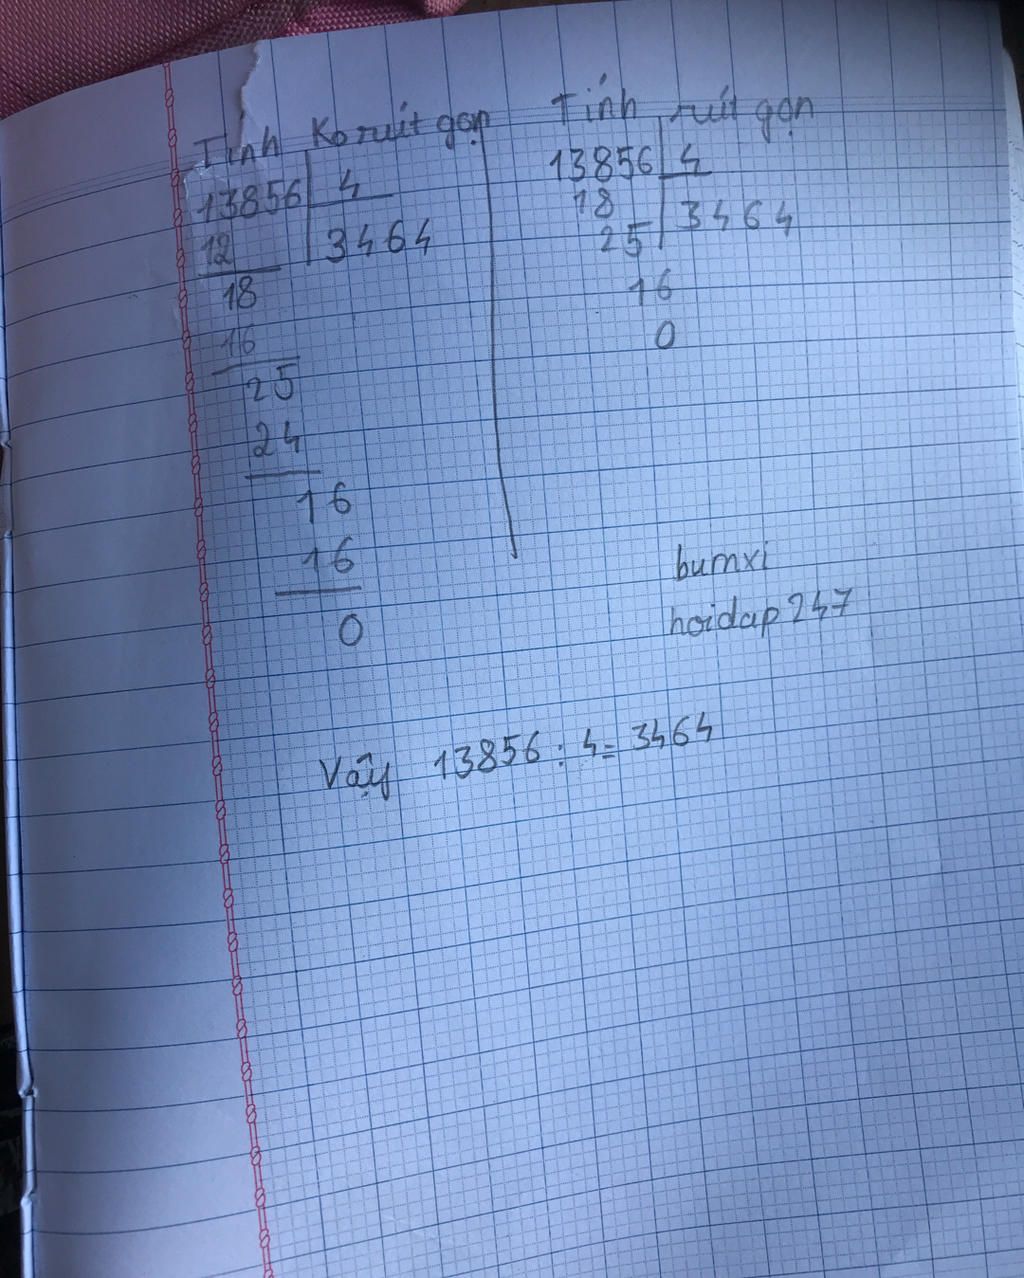 Tính Ko rút gọn
13856 4
12 3464
18
16
25
24
16
16
0
Tính rút gọn
13856 4
18 3464
25
16
0
bumxi
hoidap247
Vậy 13856 : 4 = 3464